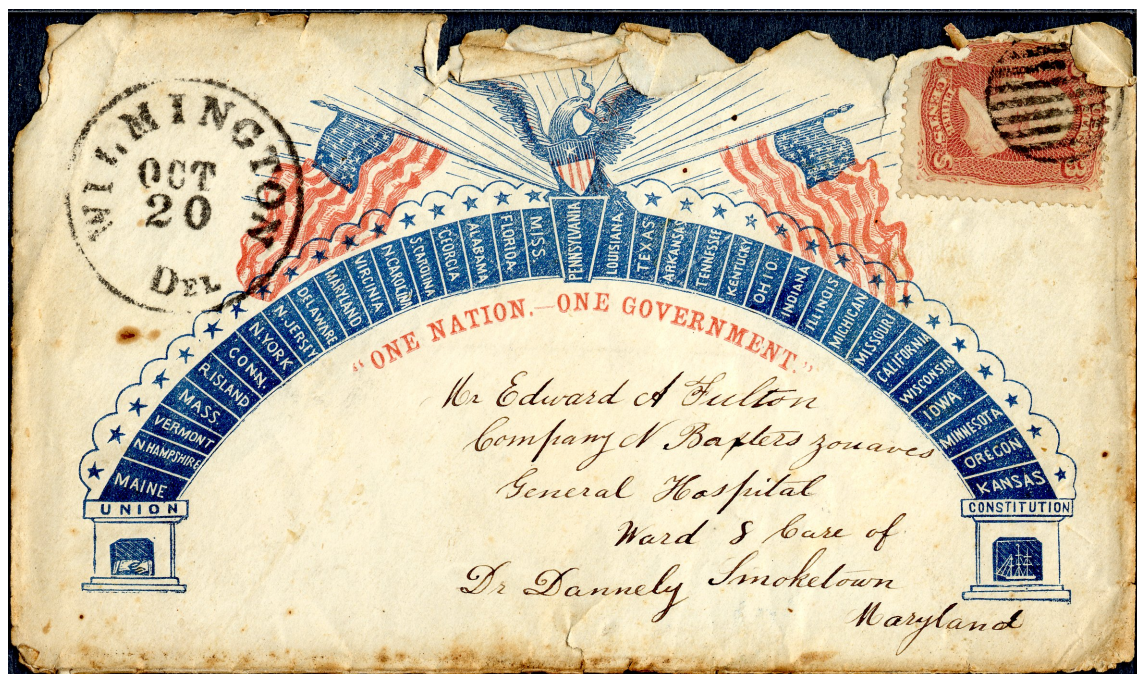 WILMINGTON
OCT
20
DEL
MAINE
N. HAMPSHIRE
VERMONT
MASS.
R. ISLAND
CONN.
N. YORK
N. JERSEY
DELAWARE
MARYLAND
VIRGINIA
N. CAROLINA
S. CAROLINA
GEORGIA
ALABAMA
FLORIDA
MISS.
PENNSYLVANIA
LOUISIANA
TEXAS
ARKANSAS
TENNESSEE
KENTUCKY
OHIO
INDIANA
ILLINOIS
MICHIGAN
MISSOURI
CALIFORNIA
WISCONSIN
IOWA
MINNESOTA
OREGON
KANSAS
"ONE NATION.—ONE GOVERNMENT."
UNION
CONSTITUTION
Mr Edward A Fulton
Company N Baxters zouaves
General Hospital
Ward 8 Care of
Dr Dannely Smoketown
Maryland